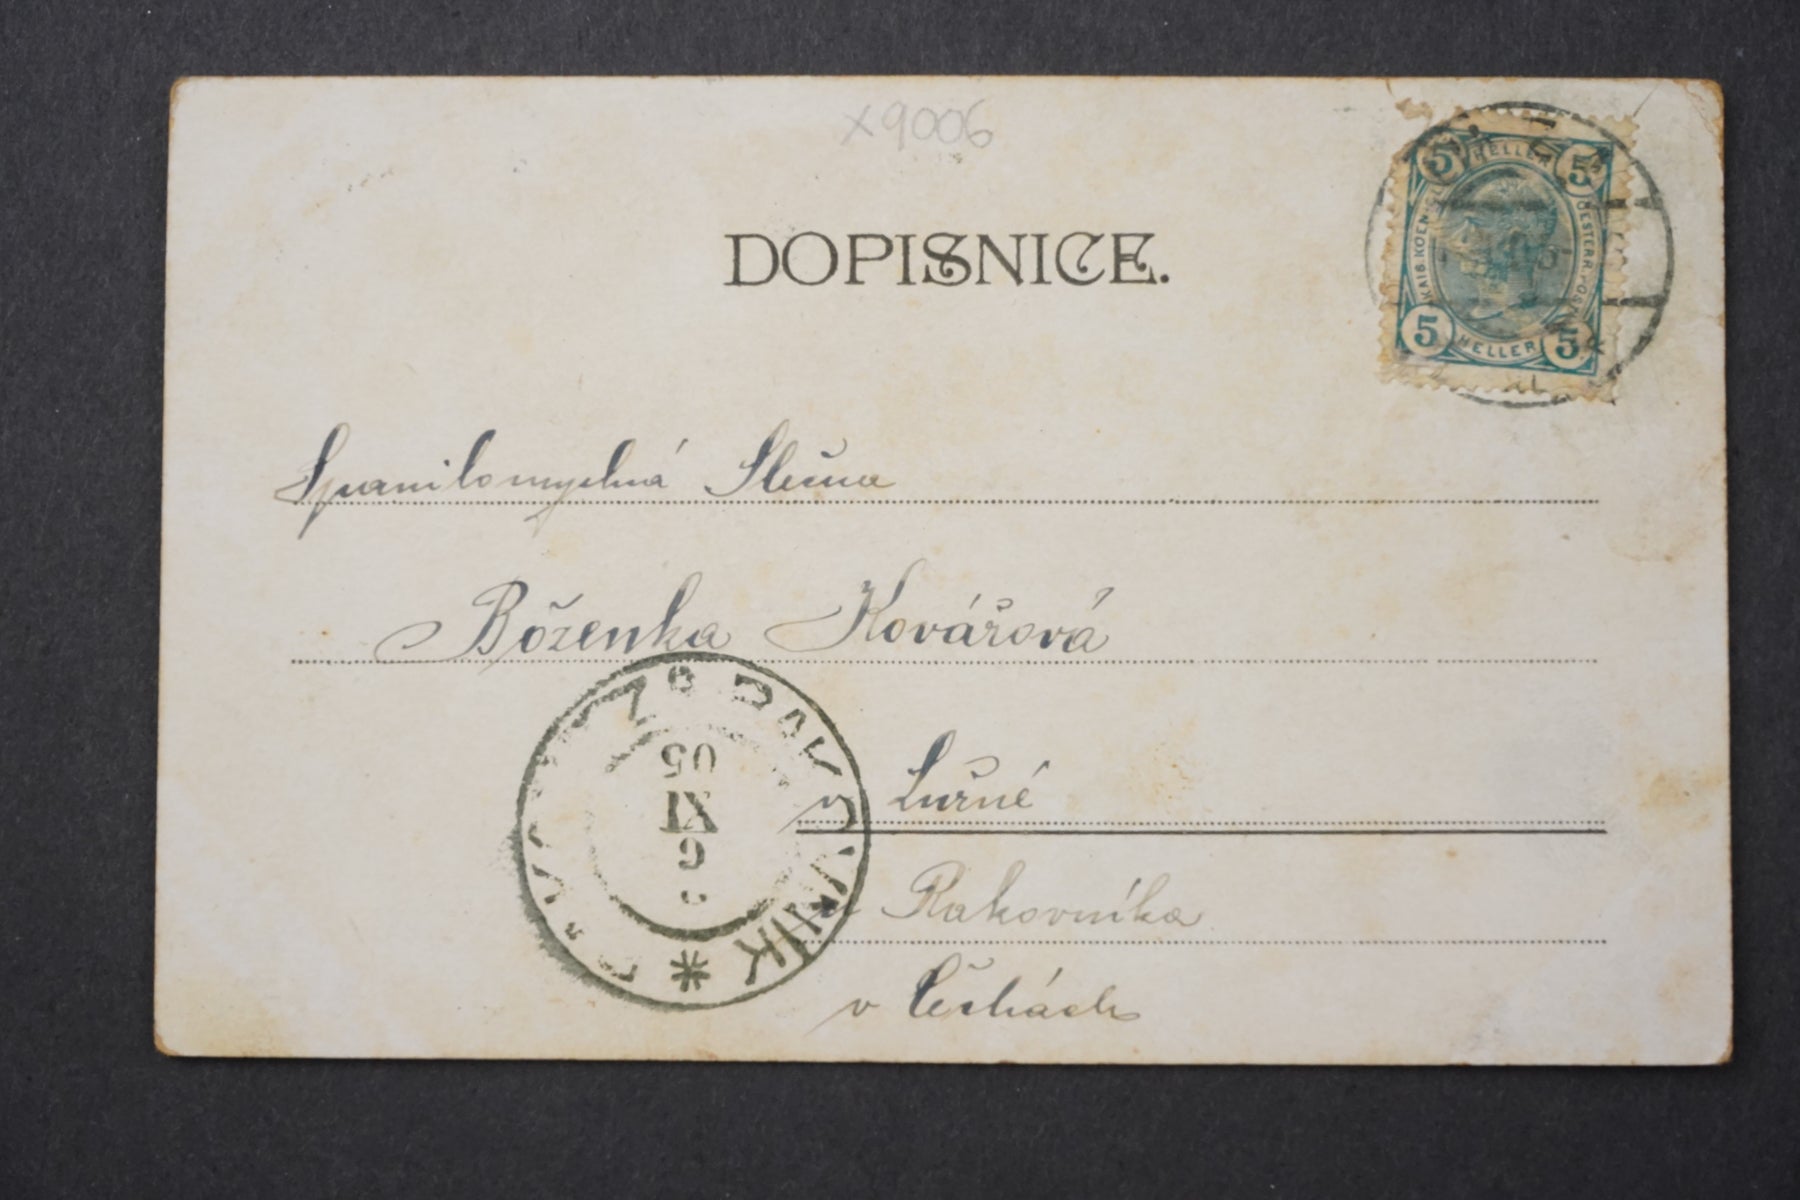 x9006
DOPISNICE.
5 HELLER 5
KAIS. KOEN.
OESTERR. POST
5 HELLER 5
Spanilomyslná Slečna
Boženka Kovářová
v Lužné
u Rakovníka
v Čechách
RAKOVNÍK
6
XI
05